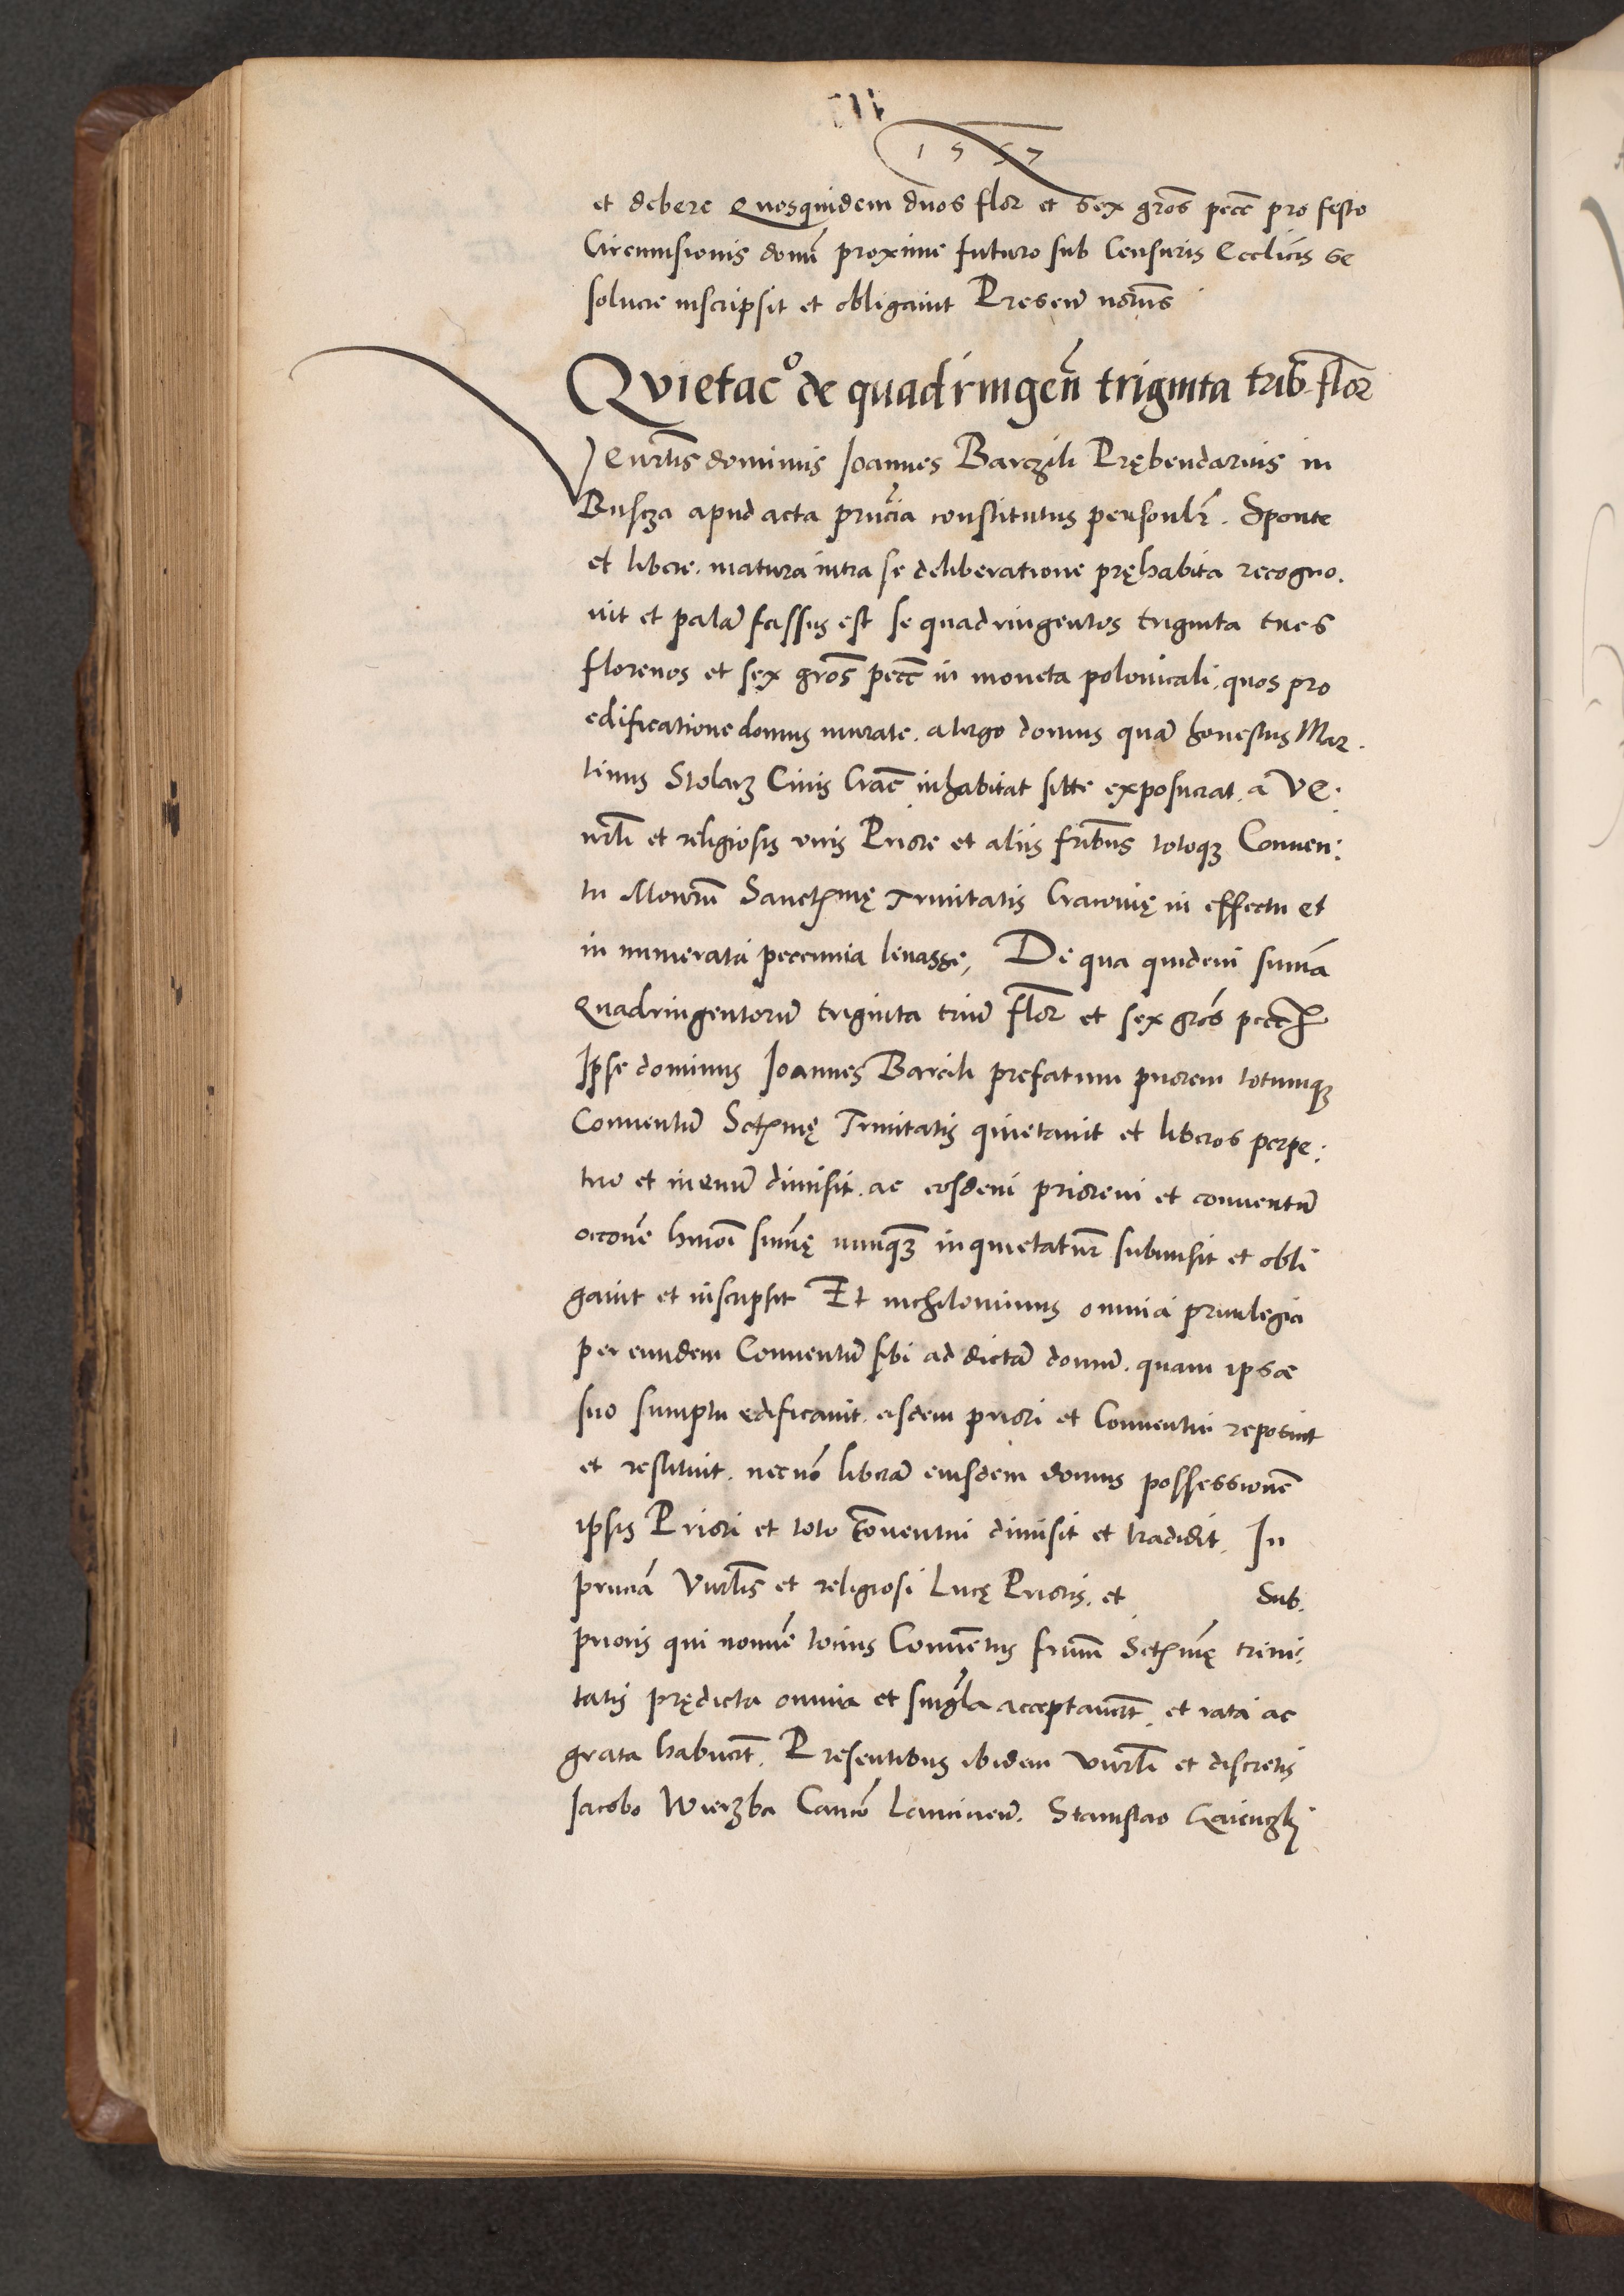 1557
et debere Quosquidem duos flor et sex gros pecc pro festo
Circumsionis domi proxime futuro sub Censuris Ecclicis se
soluere inscripsit et obligauit Presen notus
Qvietaco de quadringen triginta trib flor
Venrlis dominus Ioannes Barczili Prębendarius in
Buscza apud acta pruncia constitutus personlr. Sponte
et libere. matura intra se deliberatione pręhabita recogno.
uit et palā fassus est se quadringentos triginta tres
florenos et sex gros pecc in moneta polonicali, quos pro
edificatione domus murate. a tergo domus quā honestus Mar.
tinus Stolarz Ciuis Crac inhabitat sitte exposuerat. a Ve:
nrli et religiosis viris Priore et aliis fribus totoqȝ Conuen:
tu Monrum Sanctmę Trinitatis Cracouię in effectu et
in numerata peccunia leuasse, De qua quidem suma
Quadringentorū triginta triū flor et sex gros pecc
Ipse dominus Ioannes Barcili prefatum priorem totumqȝ
Conuentū Sctmę Trinitatis quietauit et liberos perpe:
tuo et ineuū dimisit. ac eosdem priorem et conuentū
occone hmoi sumę nunqȝ inquietatur submisit et obli
gauit et inscripsit Et nichilominus omnia priuilegia
per eundem Conuentū sibi ad dictā domū. quam ipse
suo sumptu edificauit. eisdem priori et Conuentui reposuit
et restituit. necnō liberā eiusdem domus possessionē
ipsis Priori et toto conuentui dimisit et tradidit. In
prncia Vnrlis et religiosi Lucę Prioris. et Sub.
prioris qui nomine totius Conuentus frum Sctmę trini:
tatis prędicta omnia et singla acceptauert, et rata ac
grata habuert. Presentibus ibidem vnrli et discretis
Iacobo Wierzba Canco Lanciuen. Stanislao